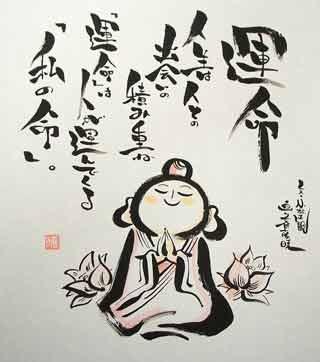 運命
人生は人との
出会いの
積み重ね
「運命」は
人が運んでくる
「私の命」。